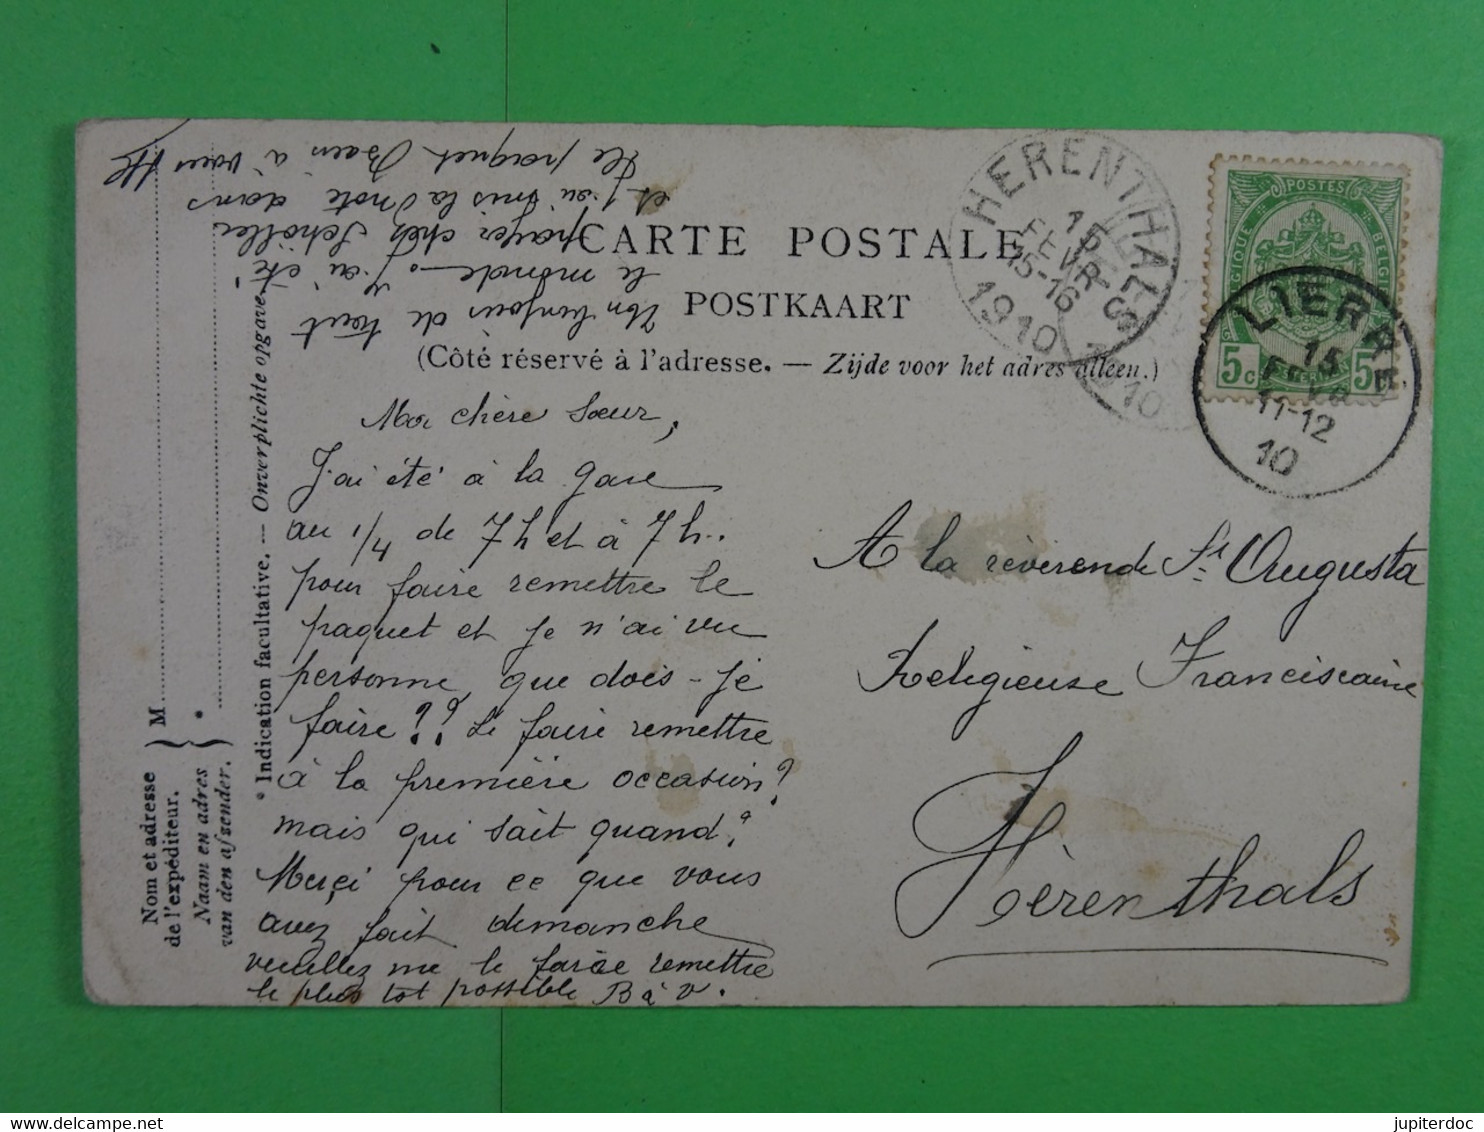 CARTE POSTALE
POSTKAART
(Côté réservé à l'adresse. — Zijde voor het adres alleen.)
HERENTHALS
15
FEVR
15-16
1910
HERENTHALS
1910
POSTES
BELGIQUE BELGIE
5c 5c
LIERRE
15
FEVR
11-12
10
Ma chère Sœur,
J'ai été à la gare
au 1/4 de 7h et à 7h..
pour faire remettre le
paquet et je n'ai vu
personne, que dois-je
faire?? Le faire remettre
à la première occasion?
mais qui sait quand?
Merçi pour ce que vous
avez fait dimanche
veuillez me le faròe remettre
le plus tot possible B à v.
Un bonjour de tout
le monde. J'ai été
payer chez Schölle
et j'ai mis la note dans
le paquet Bien à vous
A la révérende Sr Augusta
Religieuse Franciscaine
Hèrenthals
Nom et adresse
de l'expéditeur.
Naam en adres
van den afzender.
M
*
* Indication facultative. — Onverplichte opgave.
jupiterdoc